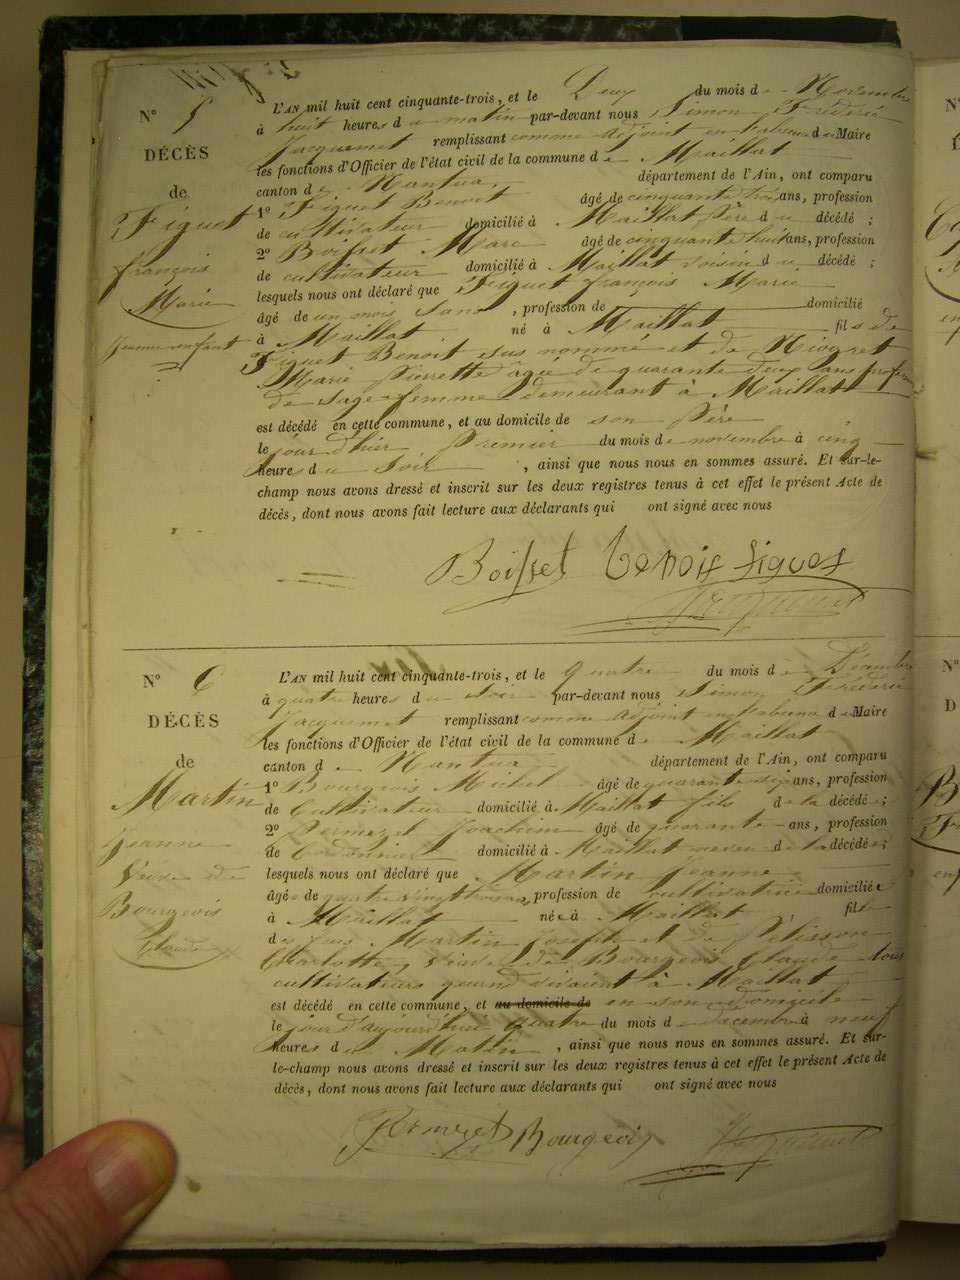 N° 5
DÉCÈS
de
Figuet
françois
Marie
Jeune enfant
L'AN mil huit cent cinquante-trois, et le Deux du mois de Novembre
à huit heures du matin par-devant nous Simon Fréderic
Jacquemet remplissant comme adjoint en du Maire
les fonctions d'Officier de l'état civil de la commune de Maillat
canton de Nantua, département de l'Ain, ont comparu
1° Figuet Benoit âgé de cinquante trois ans, profession
de cultivateur domicilié à Maillat Père du décédé ;
2° Boisset Marc âgé de cinquante huit ans, profession
de cultivateur domicilié à Maillat voisin du décédé ;
lesquels nous ont déclaré que Figuet françois Marie
âgé de un mois sans , profession de domicilié
à Maillat né à Maillat fils de
Figuet Benoit sus nommé et de Niogret
Marie Pierrette agée de quarante deux ans profession
de Sage femme demeurant à Maillat
est décédé en cette commune, et au domicile de son Père
le jour d'hier Premier du mois de novembre à cinq
heures du Soir , ainsi que nous nous en sommes assuré. Et sur-le-
champ nous avons dressé et inscrit sur les deux registres tenus à cet effet le présent Acte de
décès, dont nous avons fait lecture aux déclarants qui ont signé avec nous
Boisset Benoit figuet
Jacquemet
N° 6
DÉCÈS
de
Martin
Jeanne
Veuve de
Bourgeois
Claude
L'AN mil huit cent cinquante-trois, et le quatre du mois de Décembre
à quatre heures du soir par-devant nous Simon Fréderic
Jacquemet remplissant comme adjoint en du Maire
les fonctions d'Officier de l'état civil de la commune de Maillat
canton de Nantua département de l'Ain, ont comparu
1° Bourgeois Michel âgé de quarante six ans, profession
de Cultivateur domicilié à Maillat fils de la décédée;
2° Permezel Joachim âgé de quarante ans, profession
de Cordonnier domicilié à Maillat neveu de la décédée;
lesquels nous ont déclaré que Martin Jeanne
âgée de quatre vingt trois ans, profession de cultivatrice domiciliée
à Maillat née à Maillat fille
des feus Martin Joseph et de Pélisson
Charlotte, Veuve de Bourgeois Claude tous
cultivateurs quand vivaient à Maillat
est décédé en cette commune, et au domicile de en son domicile
le jour d'aujourd'hui quatre du mois de decembre à neuf
heures du Matin , ainsi que nous nous en sommes assuré. Et sur-
le-champ nous avons dressé et inscrit sur les deux registres tenus à cet effet le présent Acte de
décès, dont nous avons fait lecture aux déclarants qui ont signé avec nous
Permezel Bourgeois Jacquemet